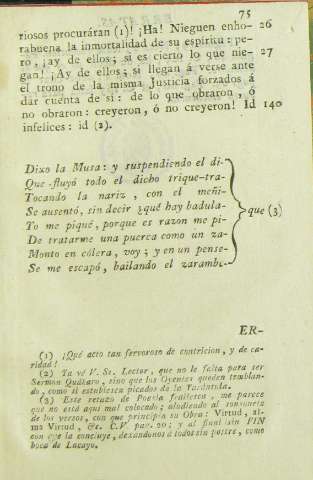 75
riosos procuráran (1)! ¡Ha! Nieguen enho- 26
rabuena la inmortalidad de su espíritu: pe-
ro, ¡ay de ellos; si es cierto lo que nie- 27
gan! ¡Ay de ellos; si llegan á verse ante
el trono de la misma Justicia forzados á
dar cuenta de sí: de lo que obraron, ó
no obraron: creyeron, ó no creyeron! Id 140
infelices: id (2).
Dixo la Musa: y suspendiendo el di-
Que fluyó todo el dicho trique-tra-
Tocando la nariz, con el meñi-
Se ausentó, sin decir ¿qué hay badula-
Yo me piqué, porque es razon me pi-
De tratarme una puerca como un za-
Monto en cólera, voy; y en un pense-
Se me escapó, bailando el zarambe-
que (3)
ER-
(1) ¡Qué acto tan fervoroso de contricion, y de ca-
ridad!
(2) Ya vé V. Sr. Lector, que no le falta para ser
Sermon Quákaro, sino que los Oyentes queden temblan-
do, como si estubiesen picados de la Tarántula.
(3) Este retazo de Poesía frailesca, me parece
que no está aquí mal colocado; aludiendo al sonsonete
de los versos, con que principia su Obra: Virtud, al-
ma Virtud, &c. C.V. pag. 20; y al final sin FIN
con que la concluye, dexándonos á todos sin postre, como
boca de Lacayo.